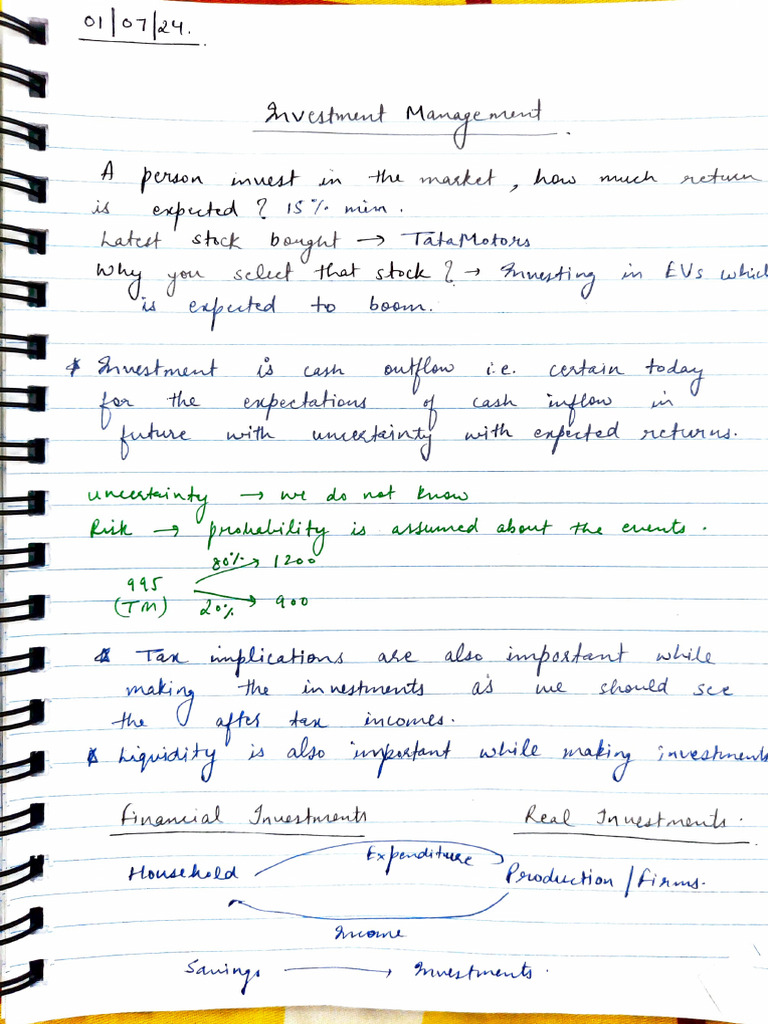 01/07/24.
Investment Management
A person invest in the market, how much return
is expected ? 15% min.
Latest stock bought → TataMotors
Why you select that stock ? → Investing in EVs which
is expected to boom.
* Investment is cash outflow i.e. certain today
for the expectations of cash inflow in
future with uncertainty with expected returns.
uncertainty → we do not know
Risk → probability is assumed about the events.
80% → 1200
995
(TM) 20% → 900
* Tax implications are also important while
making the investments as we should see
the after tax incomes.
* Liquidity is also important while making investments
Financial Investments Real Investments.
Expenditure
Household Production / Firms.
Income
Savings → Investments.